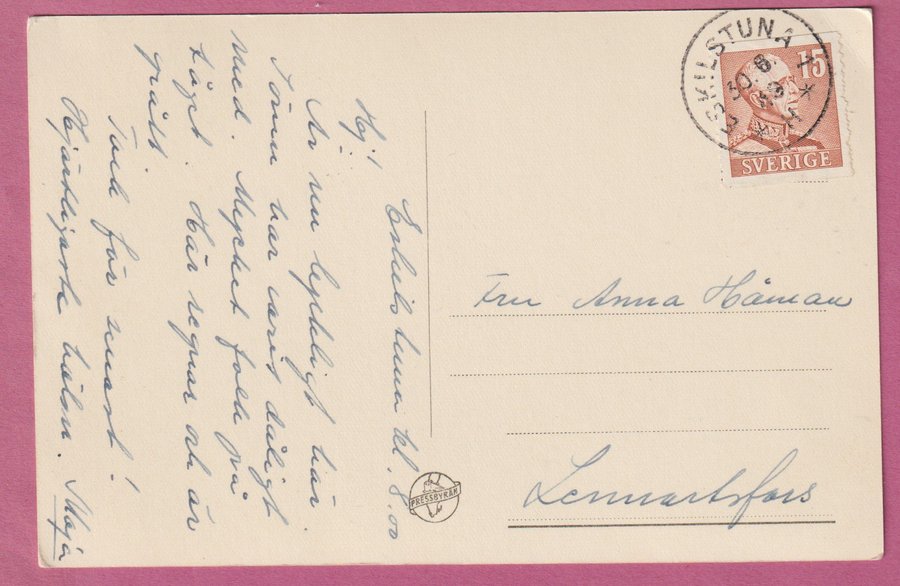 Eskilstuna kl. 8.00
Hej!
Är nu lyckligt här.
Tönn har varit dåligt
med. Mycket folk på
tåget. Här regnar och är
grått.
Tack för senast!
Hjärtligaste hälsn. Maja
ESKILSTUNA 1
30.8.
15
SVERIGE
Fru Anna Håman
Lennartsfors
PRESSBYRÅN